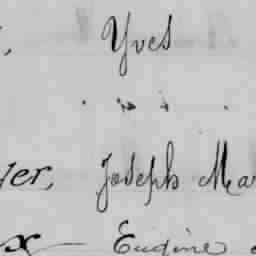 Yves
Joseph Ma
Eugène